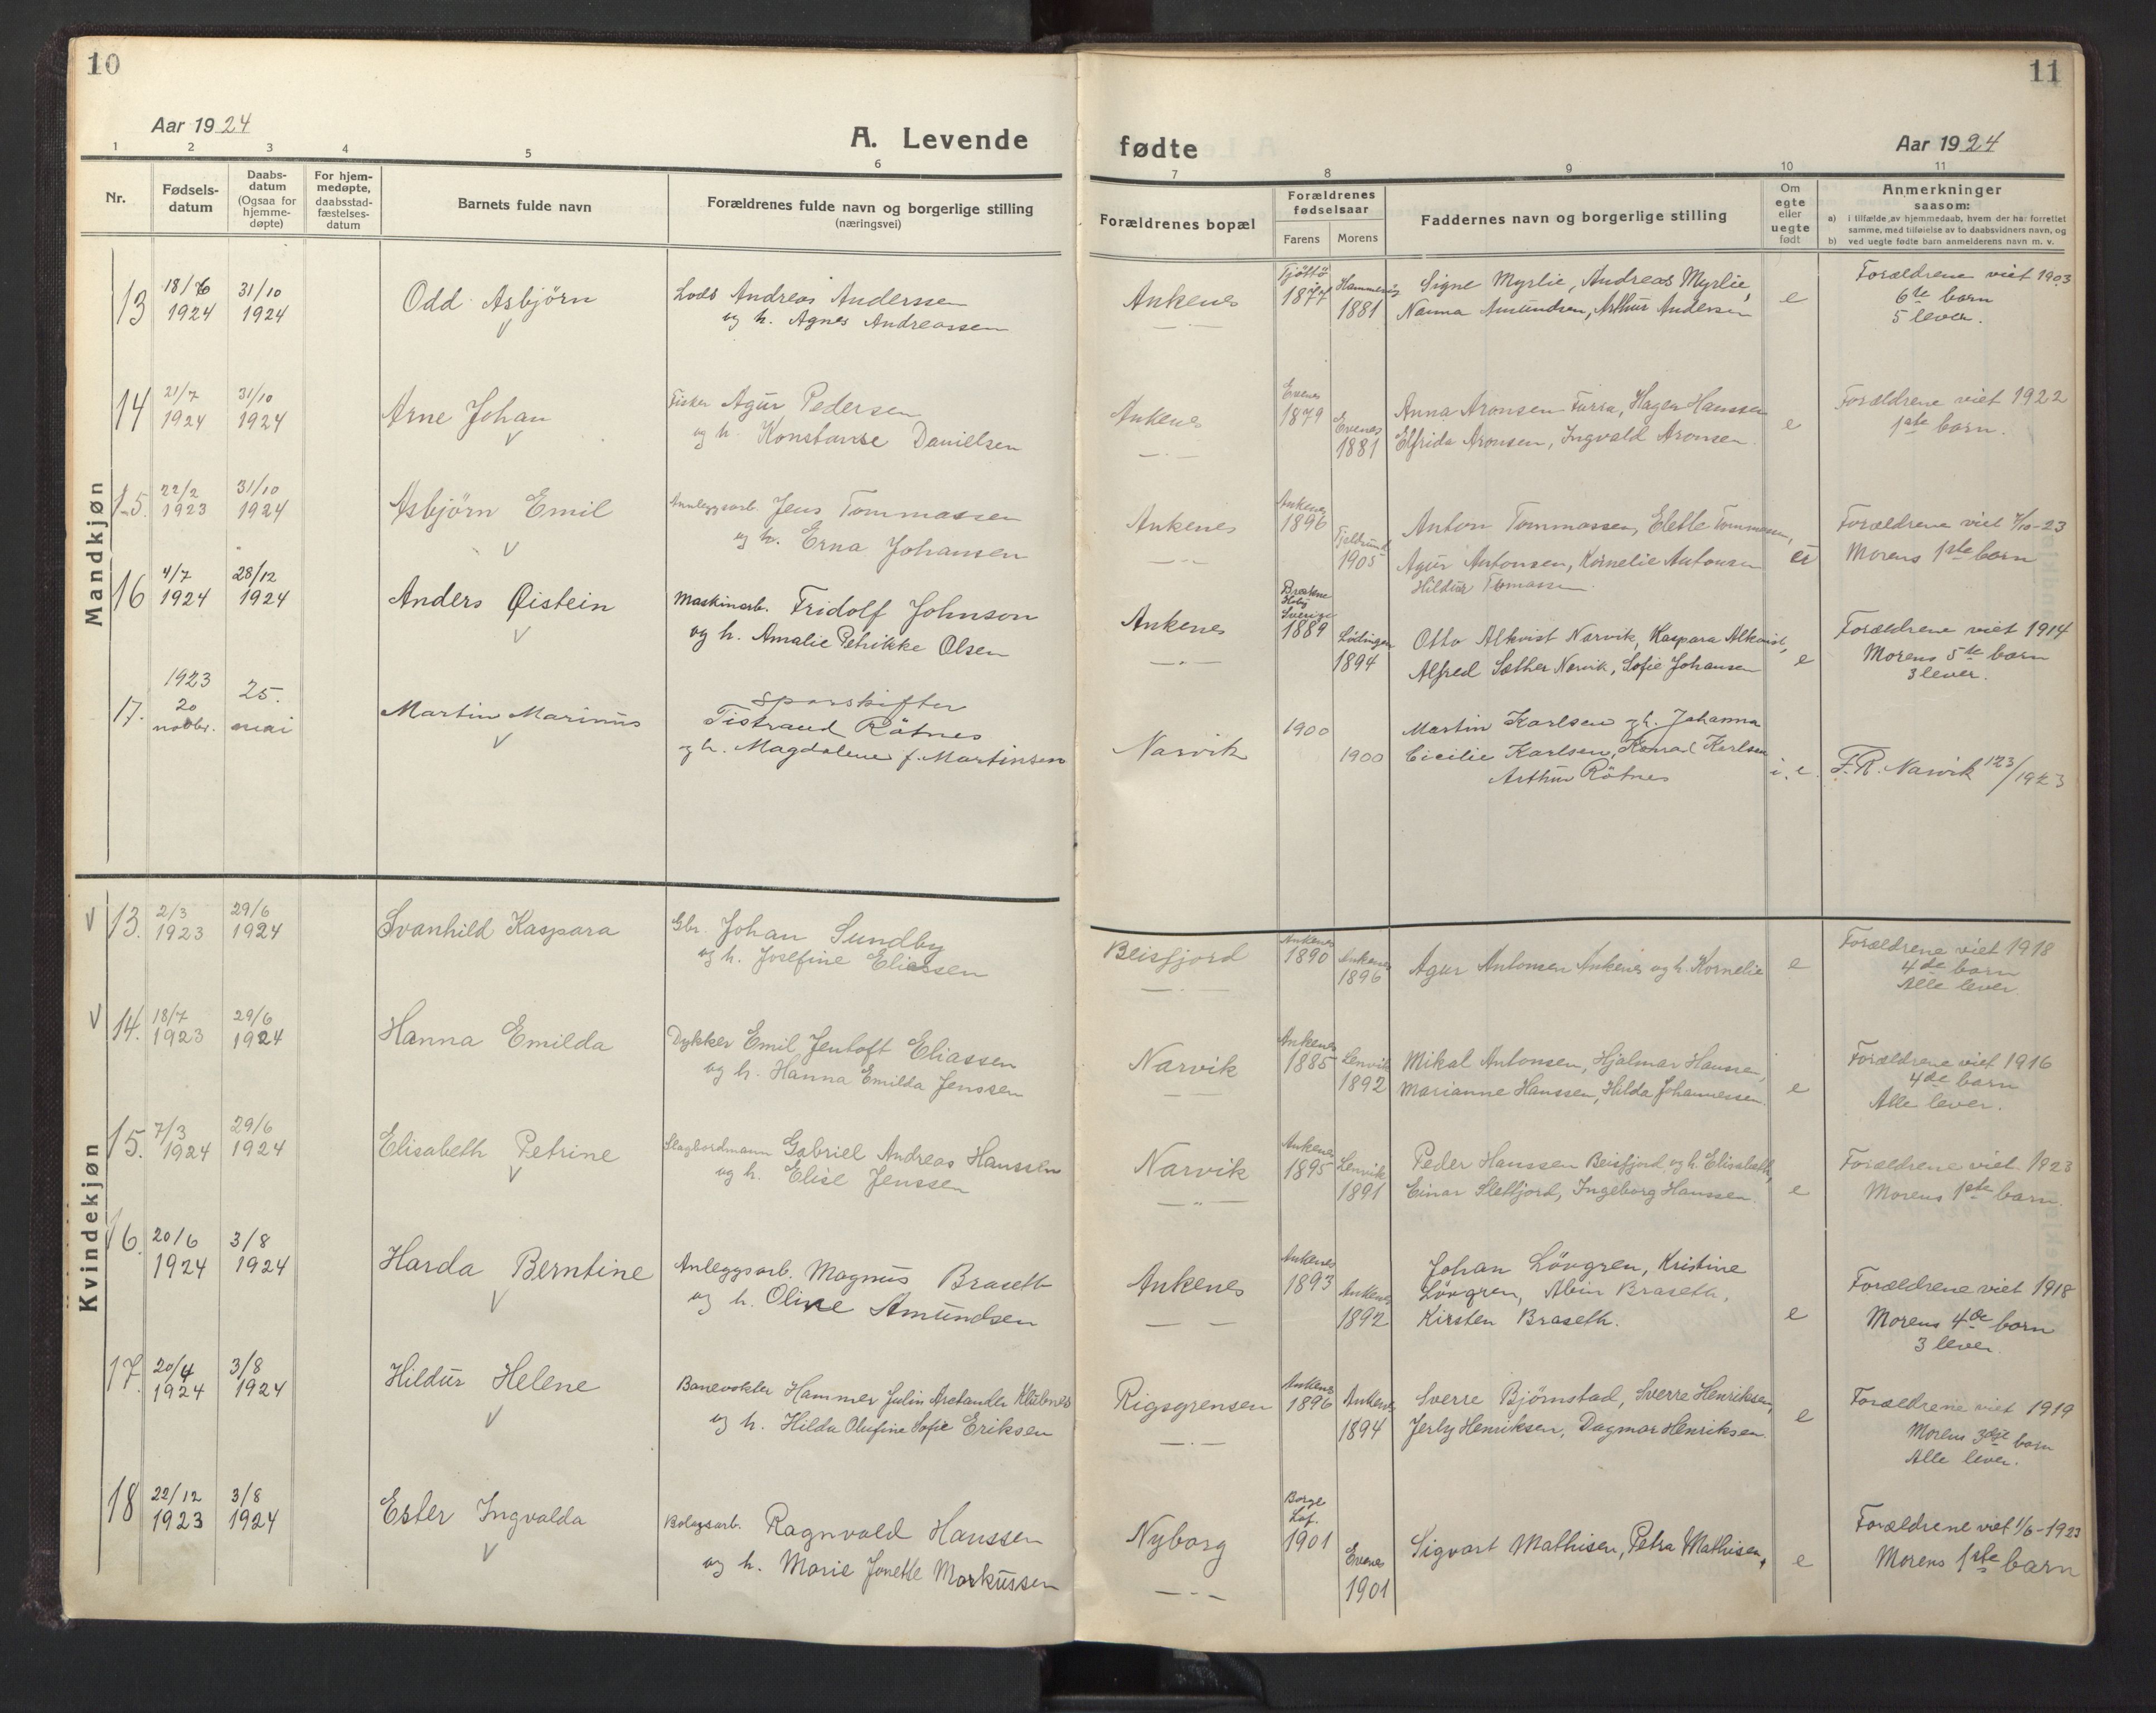 10
11
Aar 1924
A. Levende
fødte
Aar 1924
1 2 3 4 5 6 7 8 9 10 11
Nr.
Fødsels-
datum
Daabs-
datum
(Ogsaa for
hjemme-
døpte)
For hjem-
medøpte,
daabsstad-
fæstelses-
datum
Barnets fulde navn
Forældrenes fulde navn og borgerlige stilling
(næringsvei)
Forældrenes bopæl
Forældrenes
fødselsaar
Farens Morens
Faddernes navn og borgerlige stilling
Om
egte
eller
uegte
født
Anmerkninger
saasom:
a) i tilfælde av hjemmedaab, hvem der har forrettet
samme, med tilføielse av to daabsvidners navn, og
b) ved uegte fødte barn anmelderens navn m. v.
Mandkjøn
13
18/6
1924
31/10
1924
Odd Asbjörn
Lods Andreas Anderssen
og h. Agnes Andreassen
Ankenes
Tjöttö
1877
Hammerøy
1881
Signe Myrlie, Andreas Myrlie,
Nanna Amundsen, Arthur Andersen
e
Forældrene viet 1903
6te barn
5 lever.
14
21/7
1924
31/10
1924
Arne Johan
Fisker Agur Pedersen
og h. Konstanse Danielsen
Ankenes
Evenes
1879
Evenes
1881
Anna Aronsen Furra, Hagen Hanssen
Elfrida Aronsen, Ingvald Aronsen
e
Forældrene viet 1922
1ste barn.
15.
22/2
1923
31/10
1924
Asbjörn Emil
Annleggsarb. Jens Tommassen
og h. Erna Johansen
Ankenes
Ankenes
1896
1905
Anton Tommassen, Elette Tommesen,
Agur Antonsen, Kornelie Antonsen
Hildur Tomassen
Forældrene viet 7/10-23
Morens 1ste barn
16
4/7
1924
28/12
1924
Anders Øistein
Maskinarb. Fridolf Johnson
og h. Amalie Petrikke Olsen
Ankenes
Sverige
1889
Lødingen
1894
Otto Alkvist Narvik, Kaspara Alkvist,
Alfred Sæther Narvik, Sofie Johansen
e
Forældrene viet 1914
Morens 5te barn
3 lever.
17.
1923
20
novbr.
25.
mai
Martin Marinus
Sporskifter
Tistrand Rötnes
og h. Magdalene f. Martinsen
Narvik
1900
1900
Martin Karlsen og h. Johanna
Cicilie Karlsen, Konrad Karlsen
Arthur Rötnes
i. e.
F.R. Narvik 123/1923
Kvindekjøn
13.
2/3
1923
29/6
1924
Svanhild Kaspara
Gbr. Johan Sundby
og h. Josefine Eliassen
Beisfjord
Ankenes
1890
Ankenes
1896
Agur Antonsen Ankenes og h. Kornelie
e
Forældrene viet 1918
4de barn
Alle lever.
14.
18/7
1923
29/6
1924
Hanna Emilda
Dykker Emil Jentoft Eliassen
og h. Hanna Emilda Jenssen
Narvik
Ankenes
1885
Lenvik
1892
Mikal Antonsen, Hjalmar Hanssen,
Marianne Hanssen, Hilda Johannessen.
e
Forældrene viet 1916
4de barn
Alle lever.
15.
7/3
1924
29/6
1924
Elisabeth Petrine
Slagbordmann Gabriel Andreas Hanssen
og h. Elise Jenssen
Narvik
Ankenes
1895
Lenvik
1891
Peder Hanssen Beisfjord, og h. Elisabeth,
Einar Slettjord, Ingeborg Hanssen
e
Forældrene viet 1923
Morens 1ste barn.
16.
20/6
1924
3/8
1924
Harda Berntine
Anleggsarb. Magnus Braseth
og h. Oline Amundsen
Ankenes
Ankenes
1893
Ankenes
1892
Johan Lövgren, Kristine
Lövgren, Albin Braseth,
Kirsten Braseth.
e
Forældrene viet 1918
Morens 4de barn
3 lever.
17.
20/4
1924
3/8
1924
Hildur Helene
Banevokter Hammer Julin Klubnes
og h. Hilda Olufine Sofie Eriksen
Rigsgrensen
Ankenes
1896
Ankenes
1894
Sverre Björnstad, Sverre Henriksen,
Henriksen, Dagmar Henriksen.
e
Forældrene viet 1919
Morens 3dje barn
Alle lever.
18
22/12
1923
3/8
1924
Ester Ingvalda
Bolagsarb. Ragnvald Hanssen
og h. Marie Jonette Markussen
Nyborg
Borge
Lof.
1901
Evenes
1901
Sigvart Mathisen, Petra Mathisen,
e
Forældrene viet 1/6-1923
Morens 1ste barn